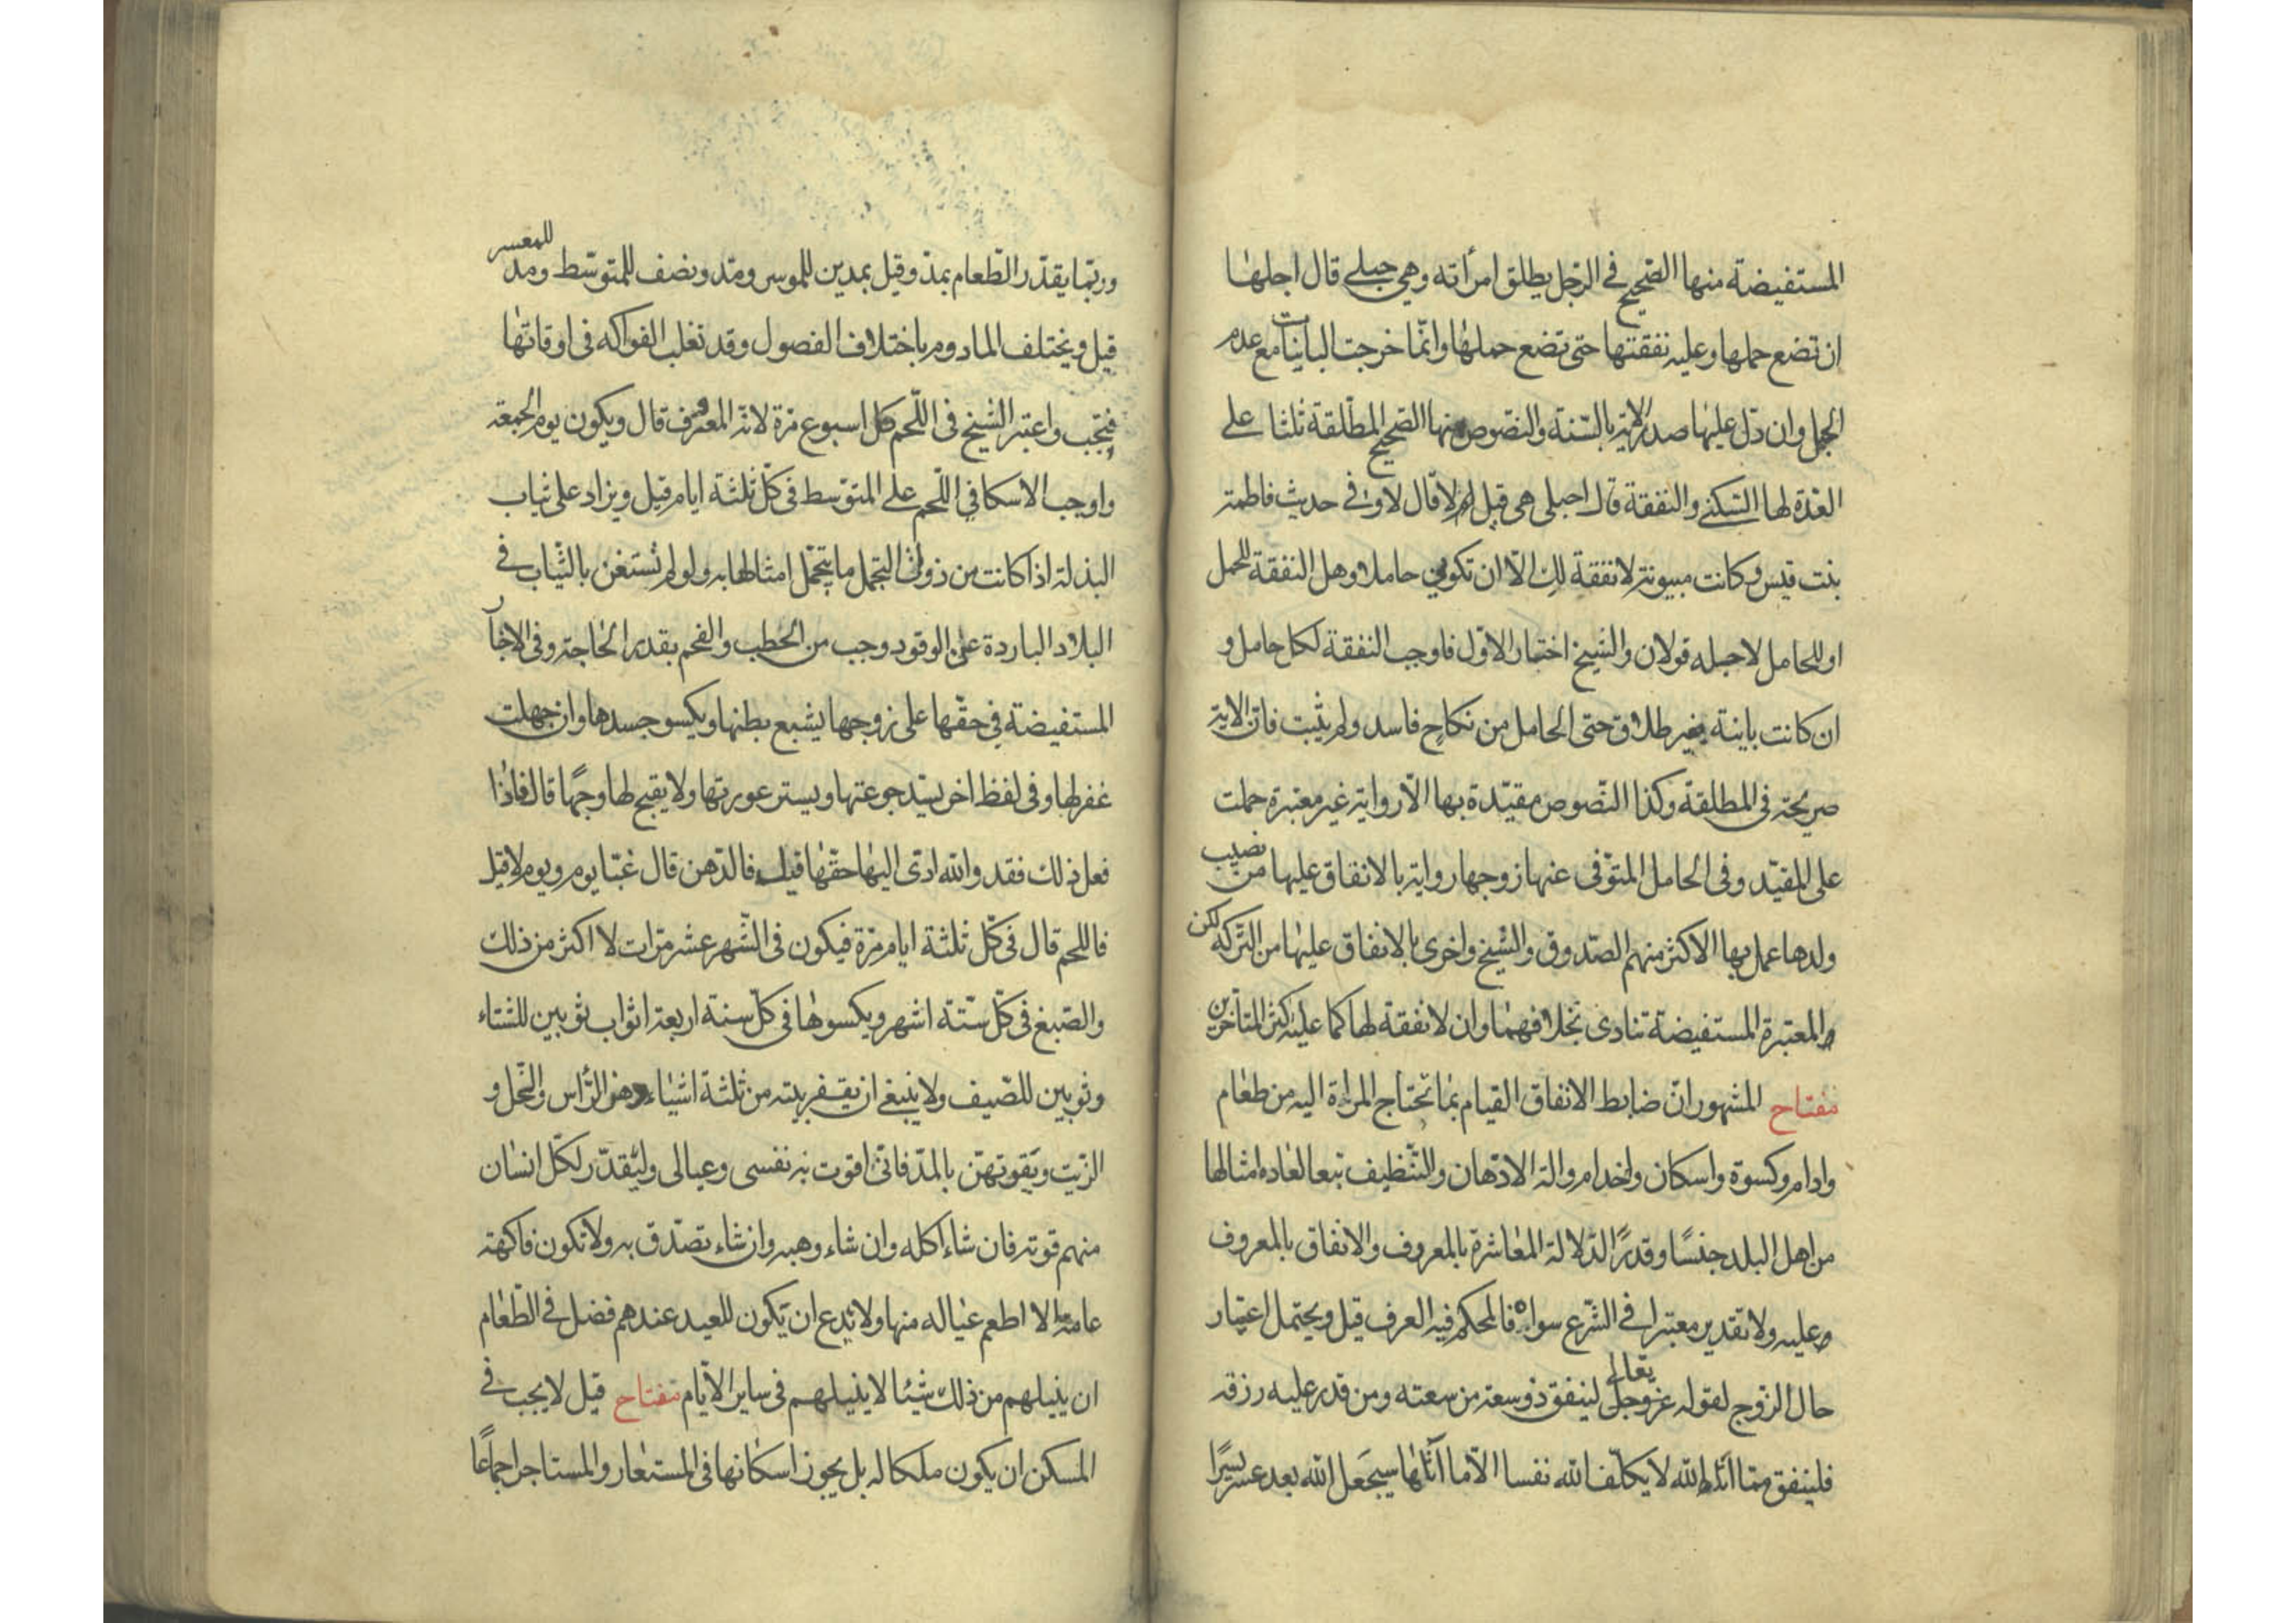 المستفيضة منها الصحيح في الرّجل يطلق امرأته وهي حبلى قال اجلها
ان تضع حملها وعليه نفقتها حتى تضع حملها وانّما خرجت الباينات مع عدم
الحمل وان دلّ عليها صدر الاية بالسّنة والنصوص منها الصحيح المطلّقة ثلثا على
العدّة لها السّكنى والنفقة قال احبلى هي قيل لا قال لا وفي حديث فاطمة
بنت قيس وكانت مبيونة لا نفقة لك الّا ان تكوني حاملا وهل النفقة للحمل
او للحامل لاجله قولان والشيخ اختار الاوّل فاوجب النفقة لكل حامل و
ان كانت باينة بغير طلاق حتى الحامل من نكاح فاسد ولم يثبت فانّ الاية
صريحة في المطلقة وكذا النّصوص مقيّدة بها الّا رواية غير معتبرة حملت
على المقيّد وفي الحامل المتوّفى عنها زوجها رواية بالانفاق عليها من نصيب
ولدها عمل بها الاكثر منهم الصّدوق والشّيخ واخرى بالانفاق عليها من التركة لكن
والمعتبرة المستفيضة تنادى بخلافهما وان لا نفقة لها كما عليه اكثر المتأخّرين
مفتاح المشهور انّ ضابط الانفاق القيام بما تحتاج المراة اليه من طعام
وادام وكسوة واسكان واخدام والة الادّهان والتّنظيف تبعا لعاده امثالها
من اهل البلد جنسًا وقدرًا لدّلالة المعاشرة بالمعروف والانفاق بالمعروف
عليه ولا تقدير معتبرا في الشّرع سواه فالمحكم فيه العرف قيل ويحتمل اعتبار
حال الزوج لقوله عزوجل تعالى لينفق ذوسعة من سعته ومن قدر عليه رزقه
فلينفق ممّا اتاه الله لا يكلّف الله نفسا الّا ما آتاها سيجعل الله بعد عسر يسرًا
وربّما يقدّر الطّعام بمدّ وقيل بمدين للموسر ومدّ ونصف للمتوسّط ومدّ للمعسر
قيل ويختلف المادوم باختلاف الفصول وقد تغلب الفواكه في اوقاتها
فتجب واعتبر الشيخ في اللّحم كل اسبوع مرّة لانّه المعروف قال ويكون يوم الجمعة
واوجب الاسكافي اللّحم على المتوّسط في كلّ ثلثة ايام قيل ويزاد على ثياب
البذلة اذا كانت من ذوات التجمل ما يتجمّل امثالها به ولو لم تستغن بالثّياب في
البلاد الباردة عن الوقود وجب من الحطب والفحم بقدر الحاجة وفي الاخبار
المستفيضة في حقّها على زوجها يشبع بطنها ويكسو جسدها وان جهلت
غفر لها وفي لفظ اخر يسّد جوعتها ويستر عورتها ولا يقبح لها وجهًا قال فاذا
فعل ذلك فقد والله ادّى اليها حقّها قيل فالدّهن قال غبّا يوم ويوم لا قيل
فاللحم قال في كلّ ثلثة ايام مرّة فيكون في الشّهر عشر مرّات لا اكثر من ذلك
والصّبغ في كلّ ستّة اشهر ويكسوها في كلّ سنة اربعة اثواب ثوبين للشتاء
وثوبين للصّيف ولا ينبغي ان يقفر بيته من ثلثة اشياء دهن الرّأس والخّل و
الزّيت ويقوتهنّ بالمدّ فانّى اقوت به نفسى وعيالى وليقدّر لكلّ انسان
منهم قوته فان شاء اكله وان شاء وهبه وان شاء تصدّق به ولا تكون فاكهة
عامة الا اطعم عياله منها ولا يدع ان يكون للعيد عندهم فضل في الطّعام
ان ينيلهم من ذلك شيئا لا ينيلهم في ساير الايّام مفتاح قيل لا يجب في
المسكن ان يكون ملكا له بل يجوز اسكانها في المستعار والمستاجر اجماعًا